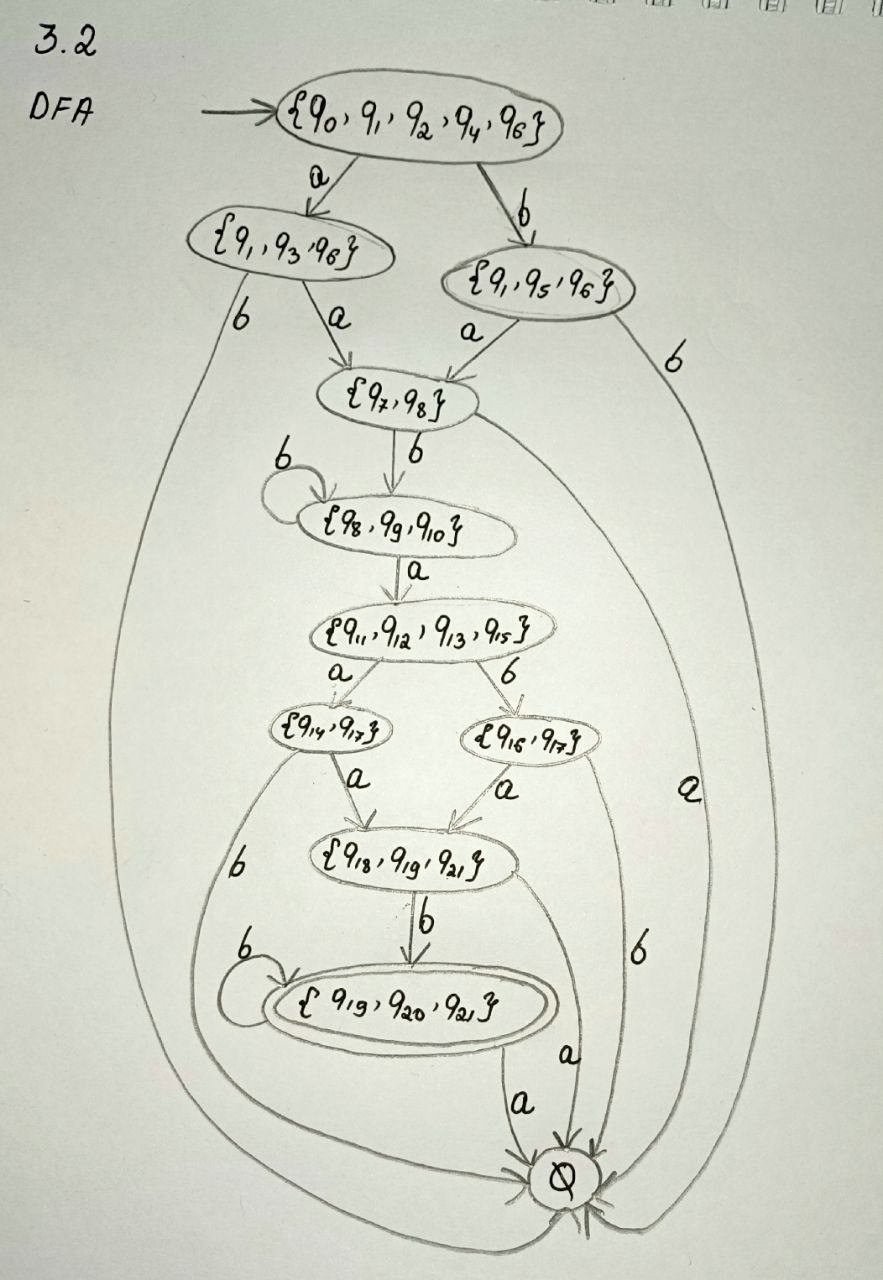 3.2
DFA
{q₀, q₁, q₂, q₄, q₆}
a
b
{q₁, q₃, q₆}
{q₁, q₅, q₆}
b
a
a
b
{q₇, q₈}
b
b
{q₈, q₉, q₁₀}
a
{q₁₁, q₁₂, q₁₃, q₁₅}
a
b
{q₁₄, q₁₇}
{q₁₆, q₁₇}
a
a
a
b
{q₁₈, q₁₉, q₂₁}
b
b
b
{q₁₉, q₂₀, q₂₁}
a
a
Ø